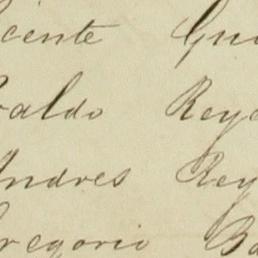 icente Gui
baldo Reye
Andres Rey
regorio Ba